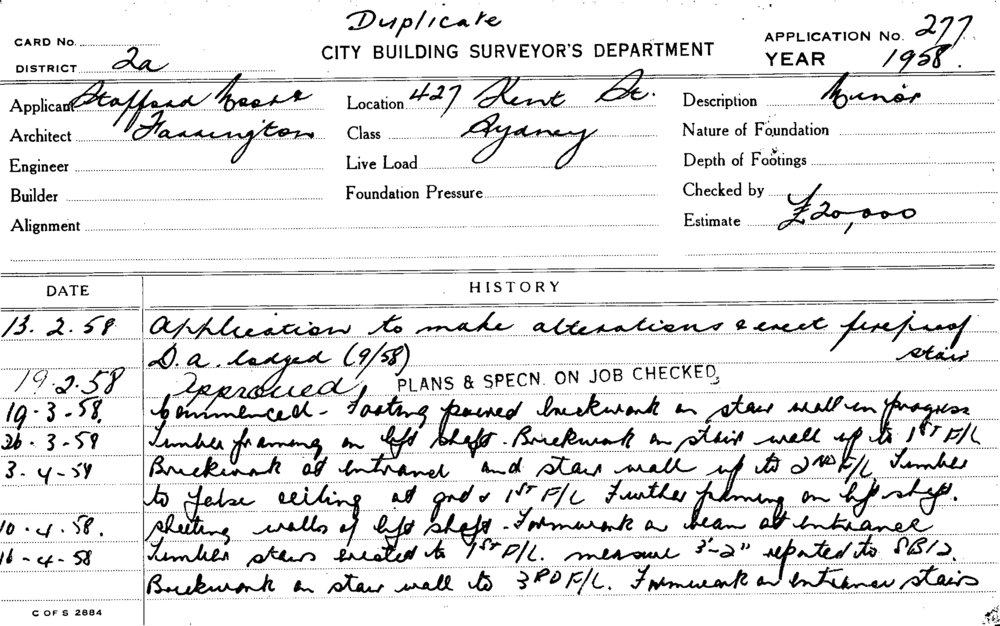 Duplicate
CARD No.
CITY BUILDING SURVEYOR'S DEPARTMENT
APPLICATION No. 277
DISTRICT 2a
YEAR 1958.
Applicant Stafford Moore
Location 427 Kent St.
Description Minor
Architect Farrington
Class Sydney
Nature of Foundation
Engineer
Live Load
Depth of Footings
Builder
Foundation Pressure
Checked by
Alignment
Estimate £20,000
DATE HISTORY
13.2.58 Application to make alterations & erect fireproof
D.A. lodged (9/58) stair
19.2.58 Approved PLANS & SPECN. ON JOB CHECKED
19-3-58. Commenced - Footing poured brickwork on stair wall in progress
26-3-58 Timber framing on lift shaft. Brickwork on stair wall up to 1ST F/L
3-4-58 Brickwork at entrance and stair wall up to 2ND F/L Timber
to false ceiling at grd & 1ST F/L Further framing on lift shaft.
10.4.58. Sheeting walls of lift shaft. Formwork on beam at entrance
16-4-58 Timber stairs erected to 1ST F/L. measure 3'-2" reported to
Brickwork on stair wall to 3RD F/L. Formwork on entrance stairs
C OF S 2884